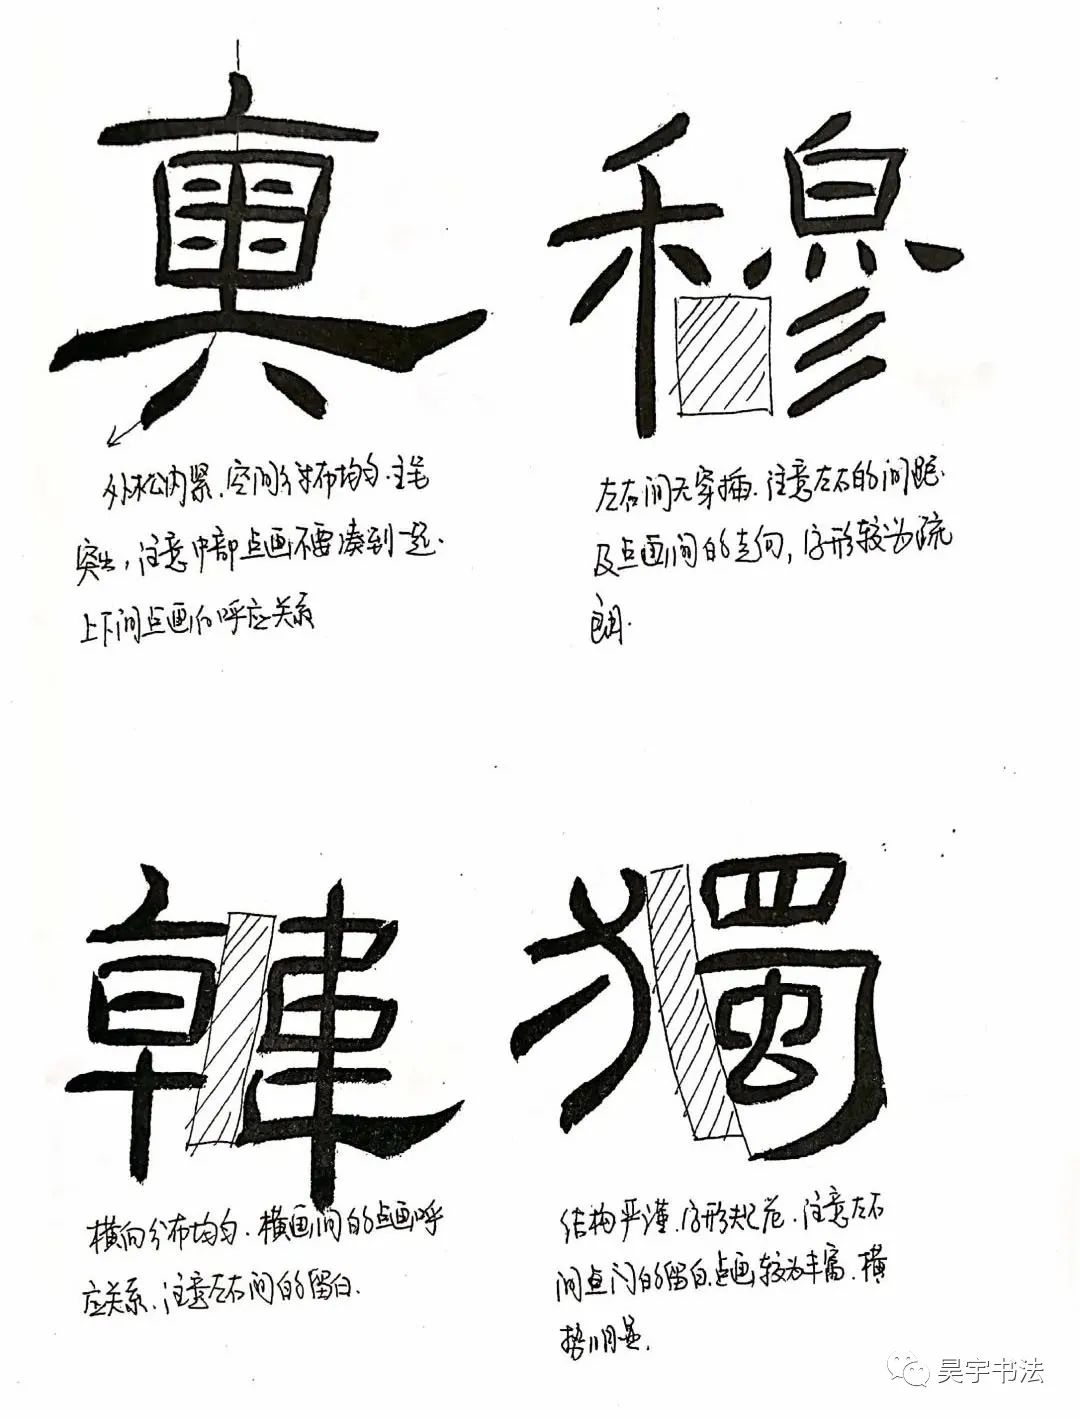 外松内紧.空间分布均匀.主笔
突出,注意中部点画不要凑到一起.
上下间点画的呼应关系
穆
左右间无穿插.注意左右的间距
及点画间的走向,字形较为疏
朗.
韓
横向分布均匀.横画间的点画呼
应关系.注意左右间的留白.
獨
结构严谨.字形规范.注意左右
间点间的留白.点画较为丰富.横
势明显.
昊宇书法